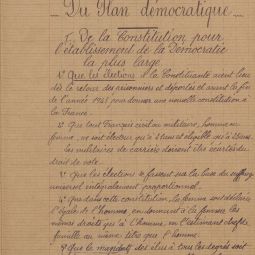 Du Plan démocratique
I. De la Constitution pour
l'établissement de la Démocratie
la plus large
1° Que les élections à la Constituante aient lieu
dès le retour des prisonniers et déportés et avant la fin
de l'année 1945 pour donner une nouvelle constitution à
la France.
2° Que tout Français civil ou militaire, homme ou
femme, soit électeur qu'à
les militaires de carrière doivent être écartés du
droit de vote.
3° Que les élections se fassent sur la base du suffrage
universel intégralement proportionnel.
4° Que dans cette constitution, la femme soit déclarée
l'égale de l'homme, en donnant à la femme les
mêmes droits qu'à l'homme,
famille au même titre que l'homme.
5° Que le mandat des élus à tous les degrés soit